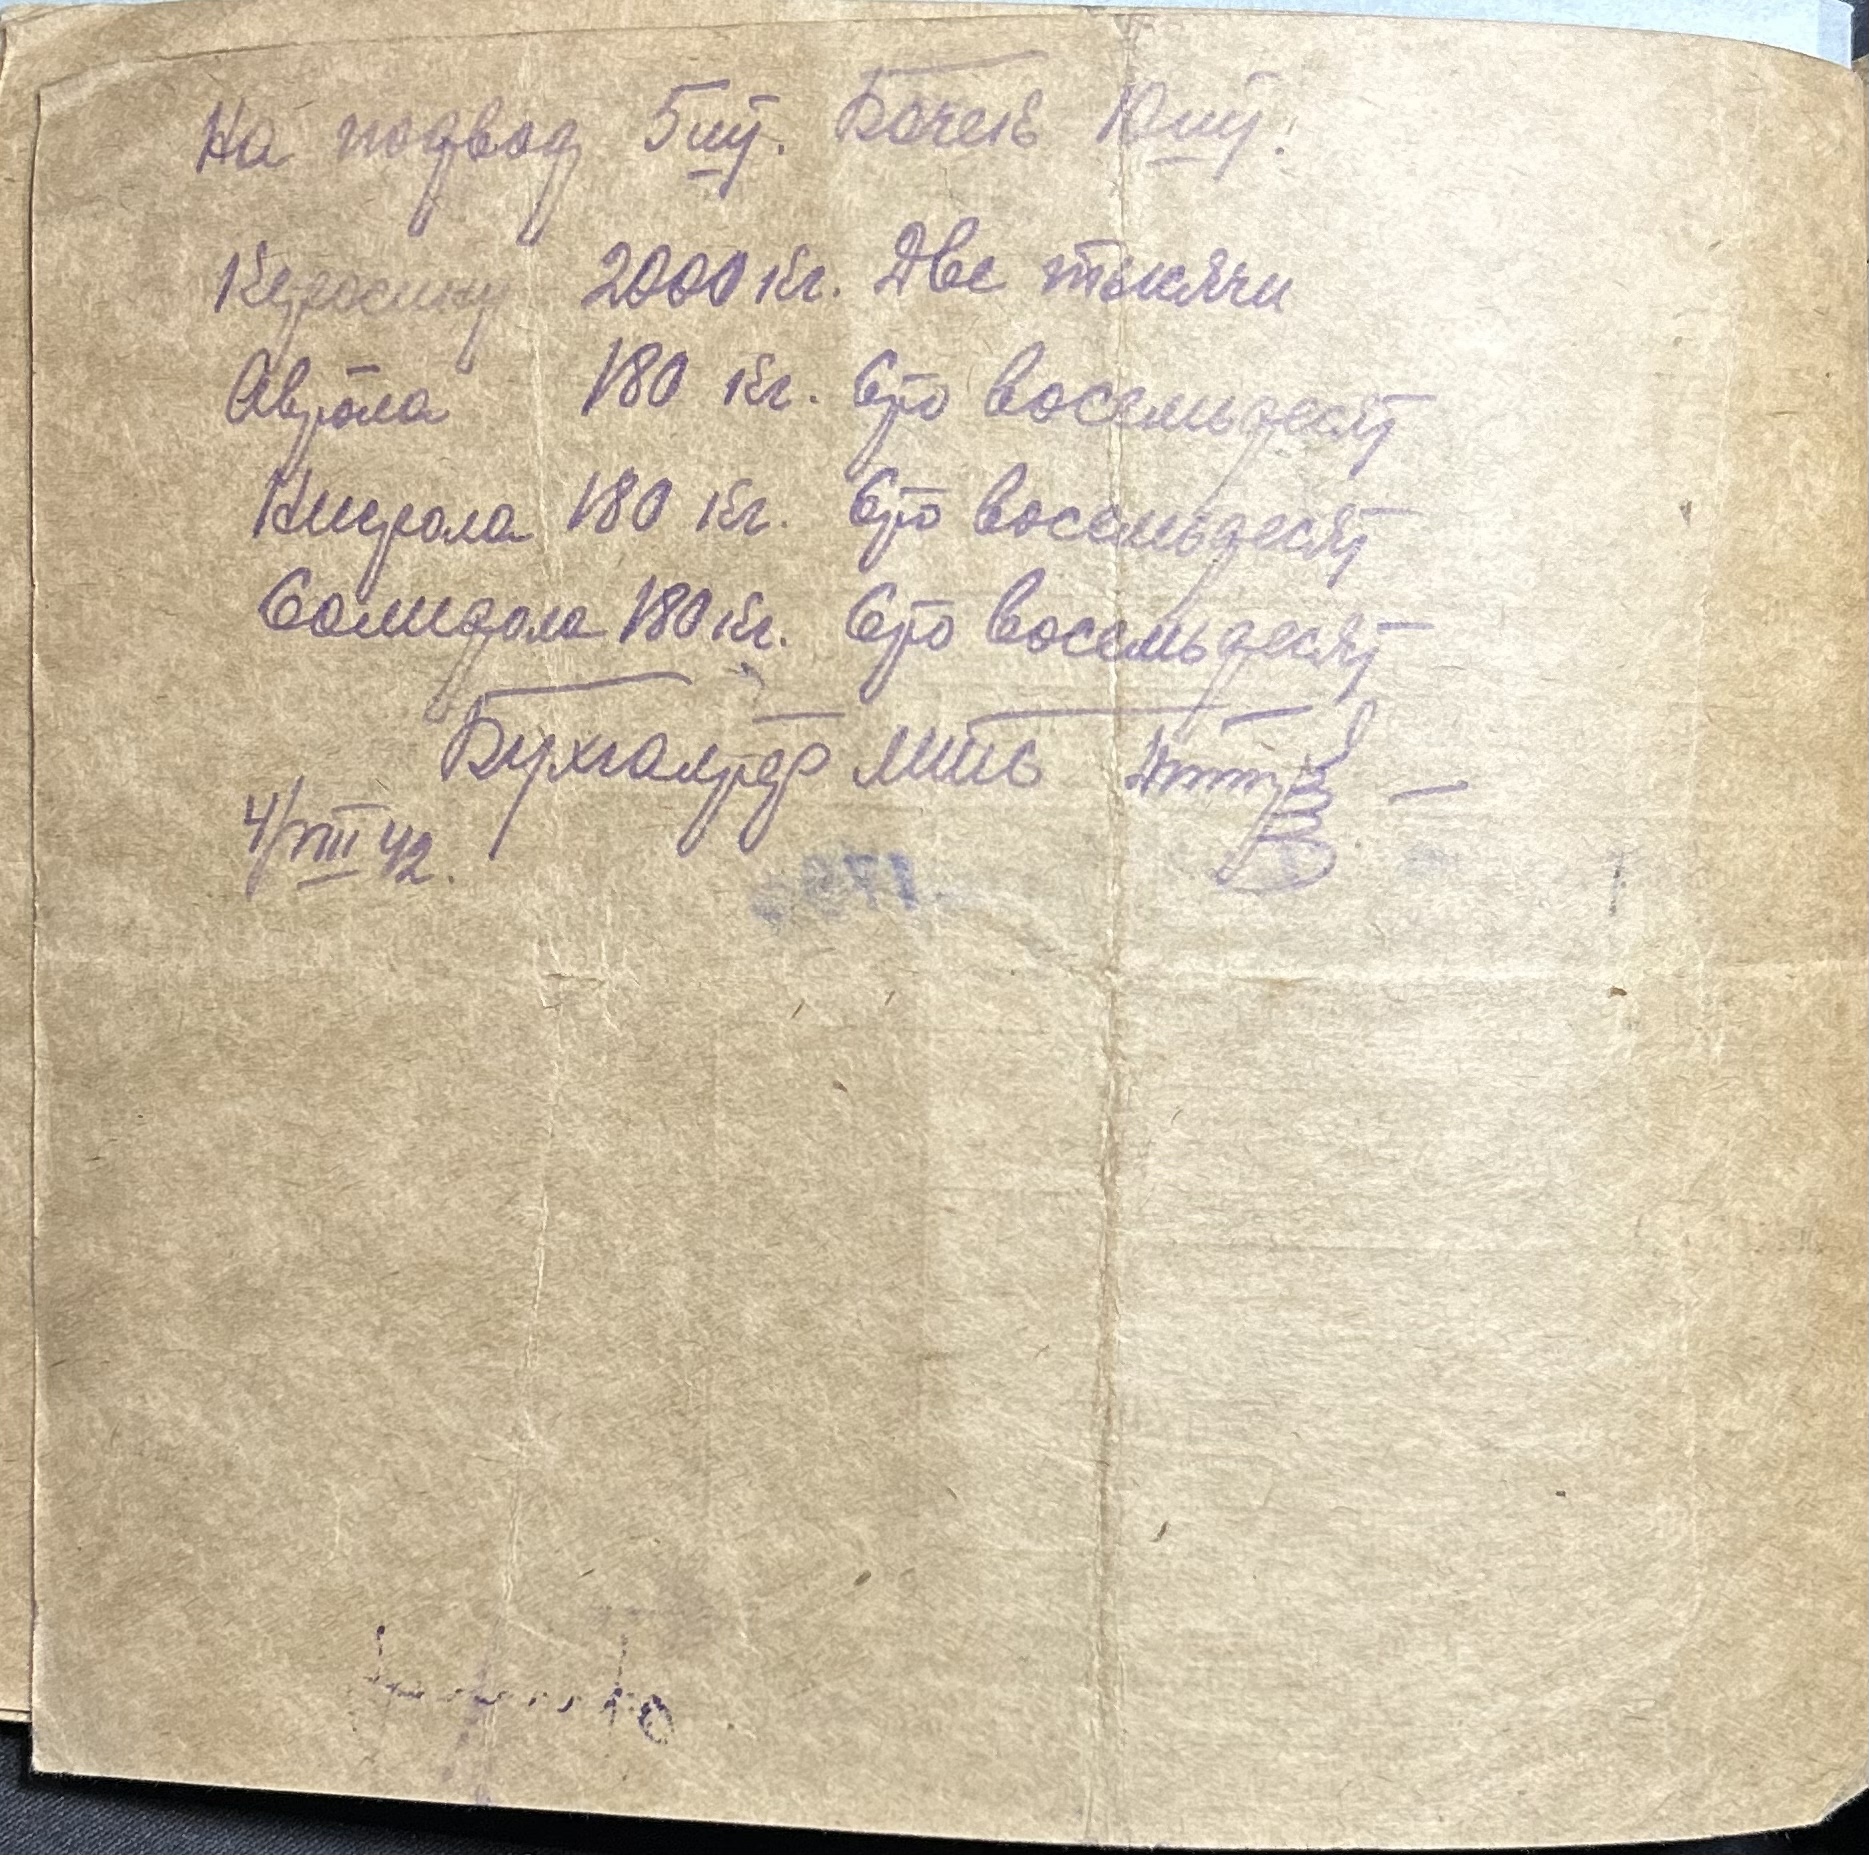 На подвод 5 шт. Бочек 10 шт.
Керосину 2000 кг. Две тысячи
Автола 180 кг. Сто восемьдесят
Нигрола 180 кг. Сто восемьдесят
Солидола 180 кг. Сто восемьдесят
Бухгалтер МТС
4/VIII 42.